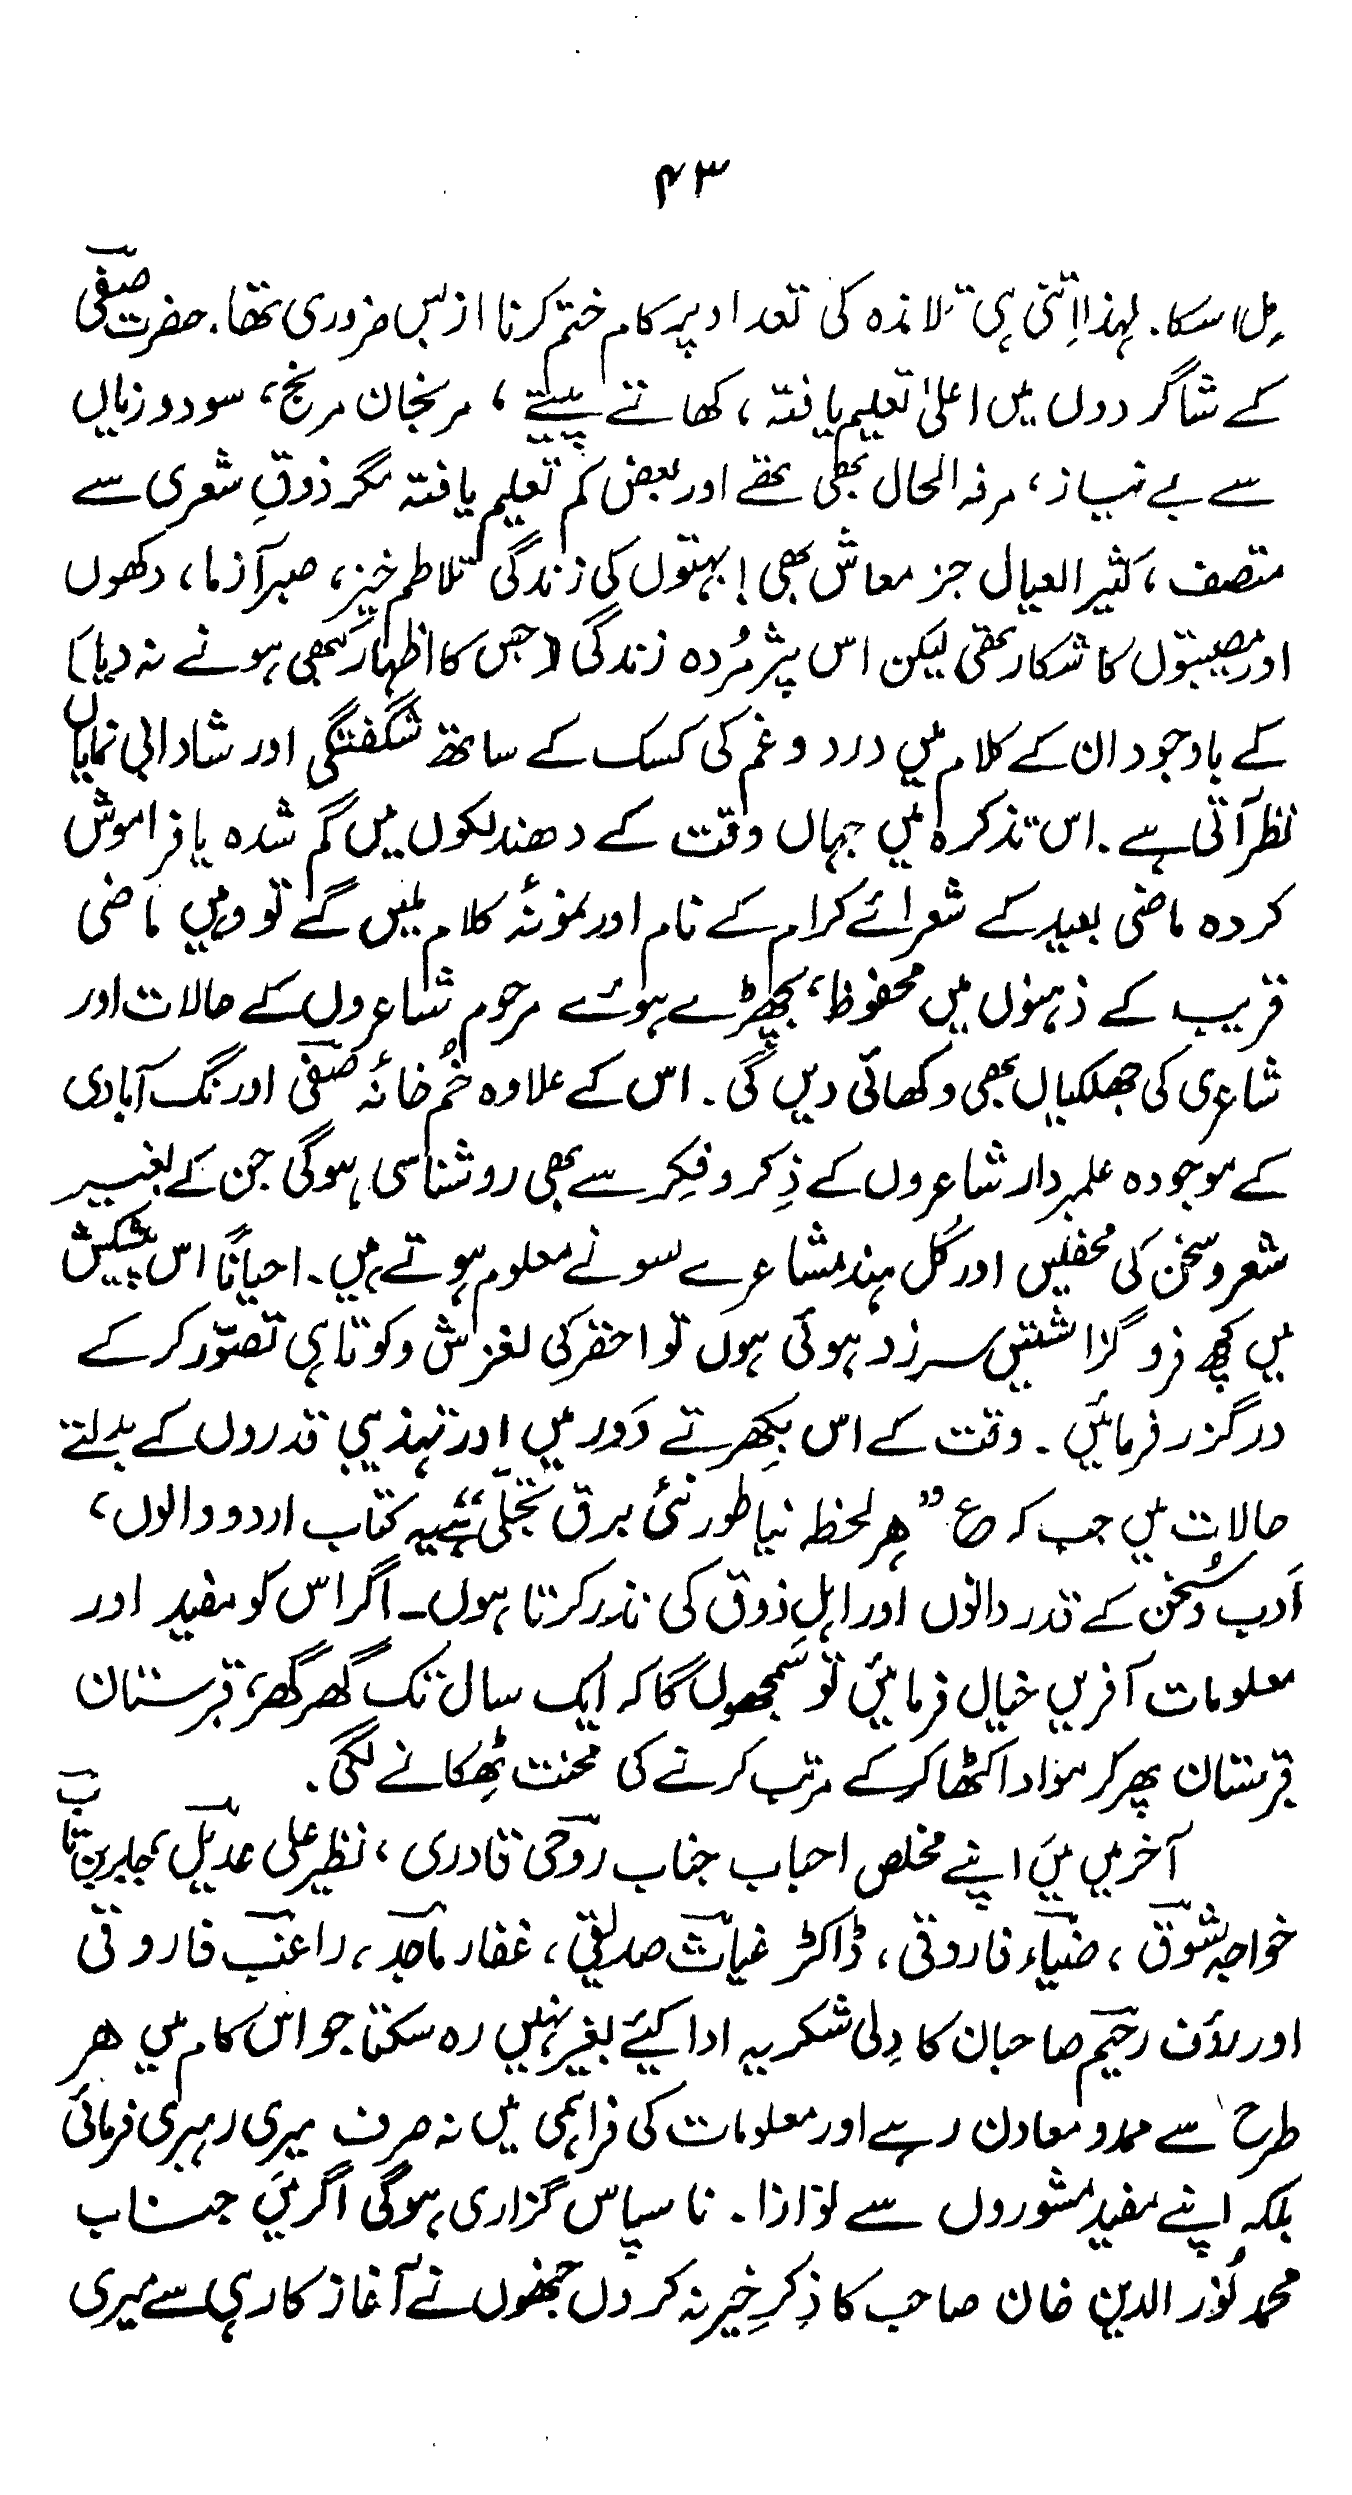 ۴۳
مِل اسکا۔ لہذا اِتنی ہی تلامذہ کی تعداد پر کام ختم کرنا ازبس ضروری تھا۔ حضرت صفیؔ
کے شاگردوں میں اعلیٰ تعلیم یافتہ، کھاتے پیتے، مرنجان مرنج، سود و زیاں
سے بے نیاز، مرفہ الحال بھی تھے اور بعض کم تعلیم یافتہ مگر ذوقِ شعری سے
متصف، کثیر العیال جز معاش بھی! بہتوں کی زندگی تلاطم خیز، صبر آزما، دکھوں
اور مصیبتوں کا شکار تھی لیکن اس پژمُردہ زندگی (جس کا اظہار کبھی ہونے نہ دیا)
کے باوجود ان کے کلام میں درد و غم کی کسک کے ساتھ شگفتگی اور شادابی نمایاں
نظر آتی ہے۔ اس تذکرہ میں جہاں وقت کے دھندلکوں میں گم شدہ یا فراموش
کردہ ماضی بعید کے شعرائے کرام کے نام اور نمونۂ کلام ملیں گے تو وہیں ماضی
قریب کے ذہنوں میں محفوظ، بچھڑے ہوئے مرحوم شاعروں کے حالات اور
شاعری کی جھلکیاں بھی دکھائی دیں گی۔ اس کے علاوہ خُم خانۂ صفیؔ اورنگ آبادی
کے موجودہ علمبردار شاعروں کے ذِکر و فِکر سے بھی روشناسی ہوگی جن کے بغیر
شعر و سخن کی محفلیں اور کُل ہند مشاعرے سونے معلوم ہوتے ہیں۔ احیاناً اس پیشکش
میں کچھ فروگزاشتیں سرزد ہوئی ہوں تو احقر کی لغزش و کوتاہی تصوّر کرکے
درگزر فرمائیں۔ وقت کے اس بِکھرتے دَور میں اور تہذیبی قدروں کے بدلتے
حالات میں جب کہ ع ”ہر لحظہ نیا طور نئی برق تجلّی ہے“ یہ کتاب اردو والوں،
اَدب و سُخن کے قدر دانوں اور اہلِ ذوق کی نذر کرتا ہوں۔ اگر اس کو مفید اور
معلومات آفریں خیال فرمائیں تو سَمجھوں گا کہ ایک سال تک گھر گھر، قبرستان
قبرستان پھر کر مواد اکٹھا کرکے مرتب کرنے کی محنت ٹِھکانے لگی۔
آخر میں مَیں اپنے مخلص احباب جناب روحیؔ قادری، نظیر علی عدیلؔ، جابر بن تابؔ
خواجہ شوقؔ، ضیاءؔ فاروقی، ڈاکٹر غیاثؔ صدیقی، غفار ماجدؔ، راغبؔ فاروقی
اور رؤف رحیمؔ صاحبان کا دِلی شکریہ ادا کیئے بغیر نہیں رہ سکتا جو اس کام میں ہر
طرح سے ممد و معاون رہے اور معلومات کی فراہمی میں نہ صرف میری رہبری فرمائی
بلکہ اپنے مفید مشوروں سے نوازا۔ نا سپاس گزاری ہوگی اگر مَیں جناب
محمد نُور الدین خان صاحب کا ذِکرِ خیر نہ کروں جنھوں نے آغازِ کار ہی سے میری